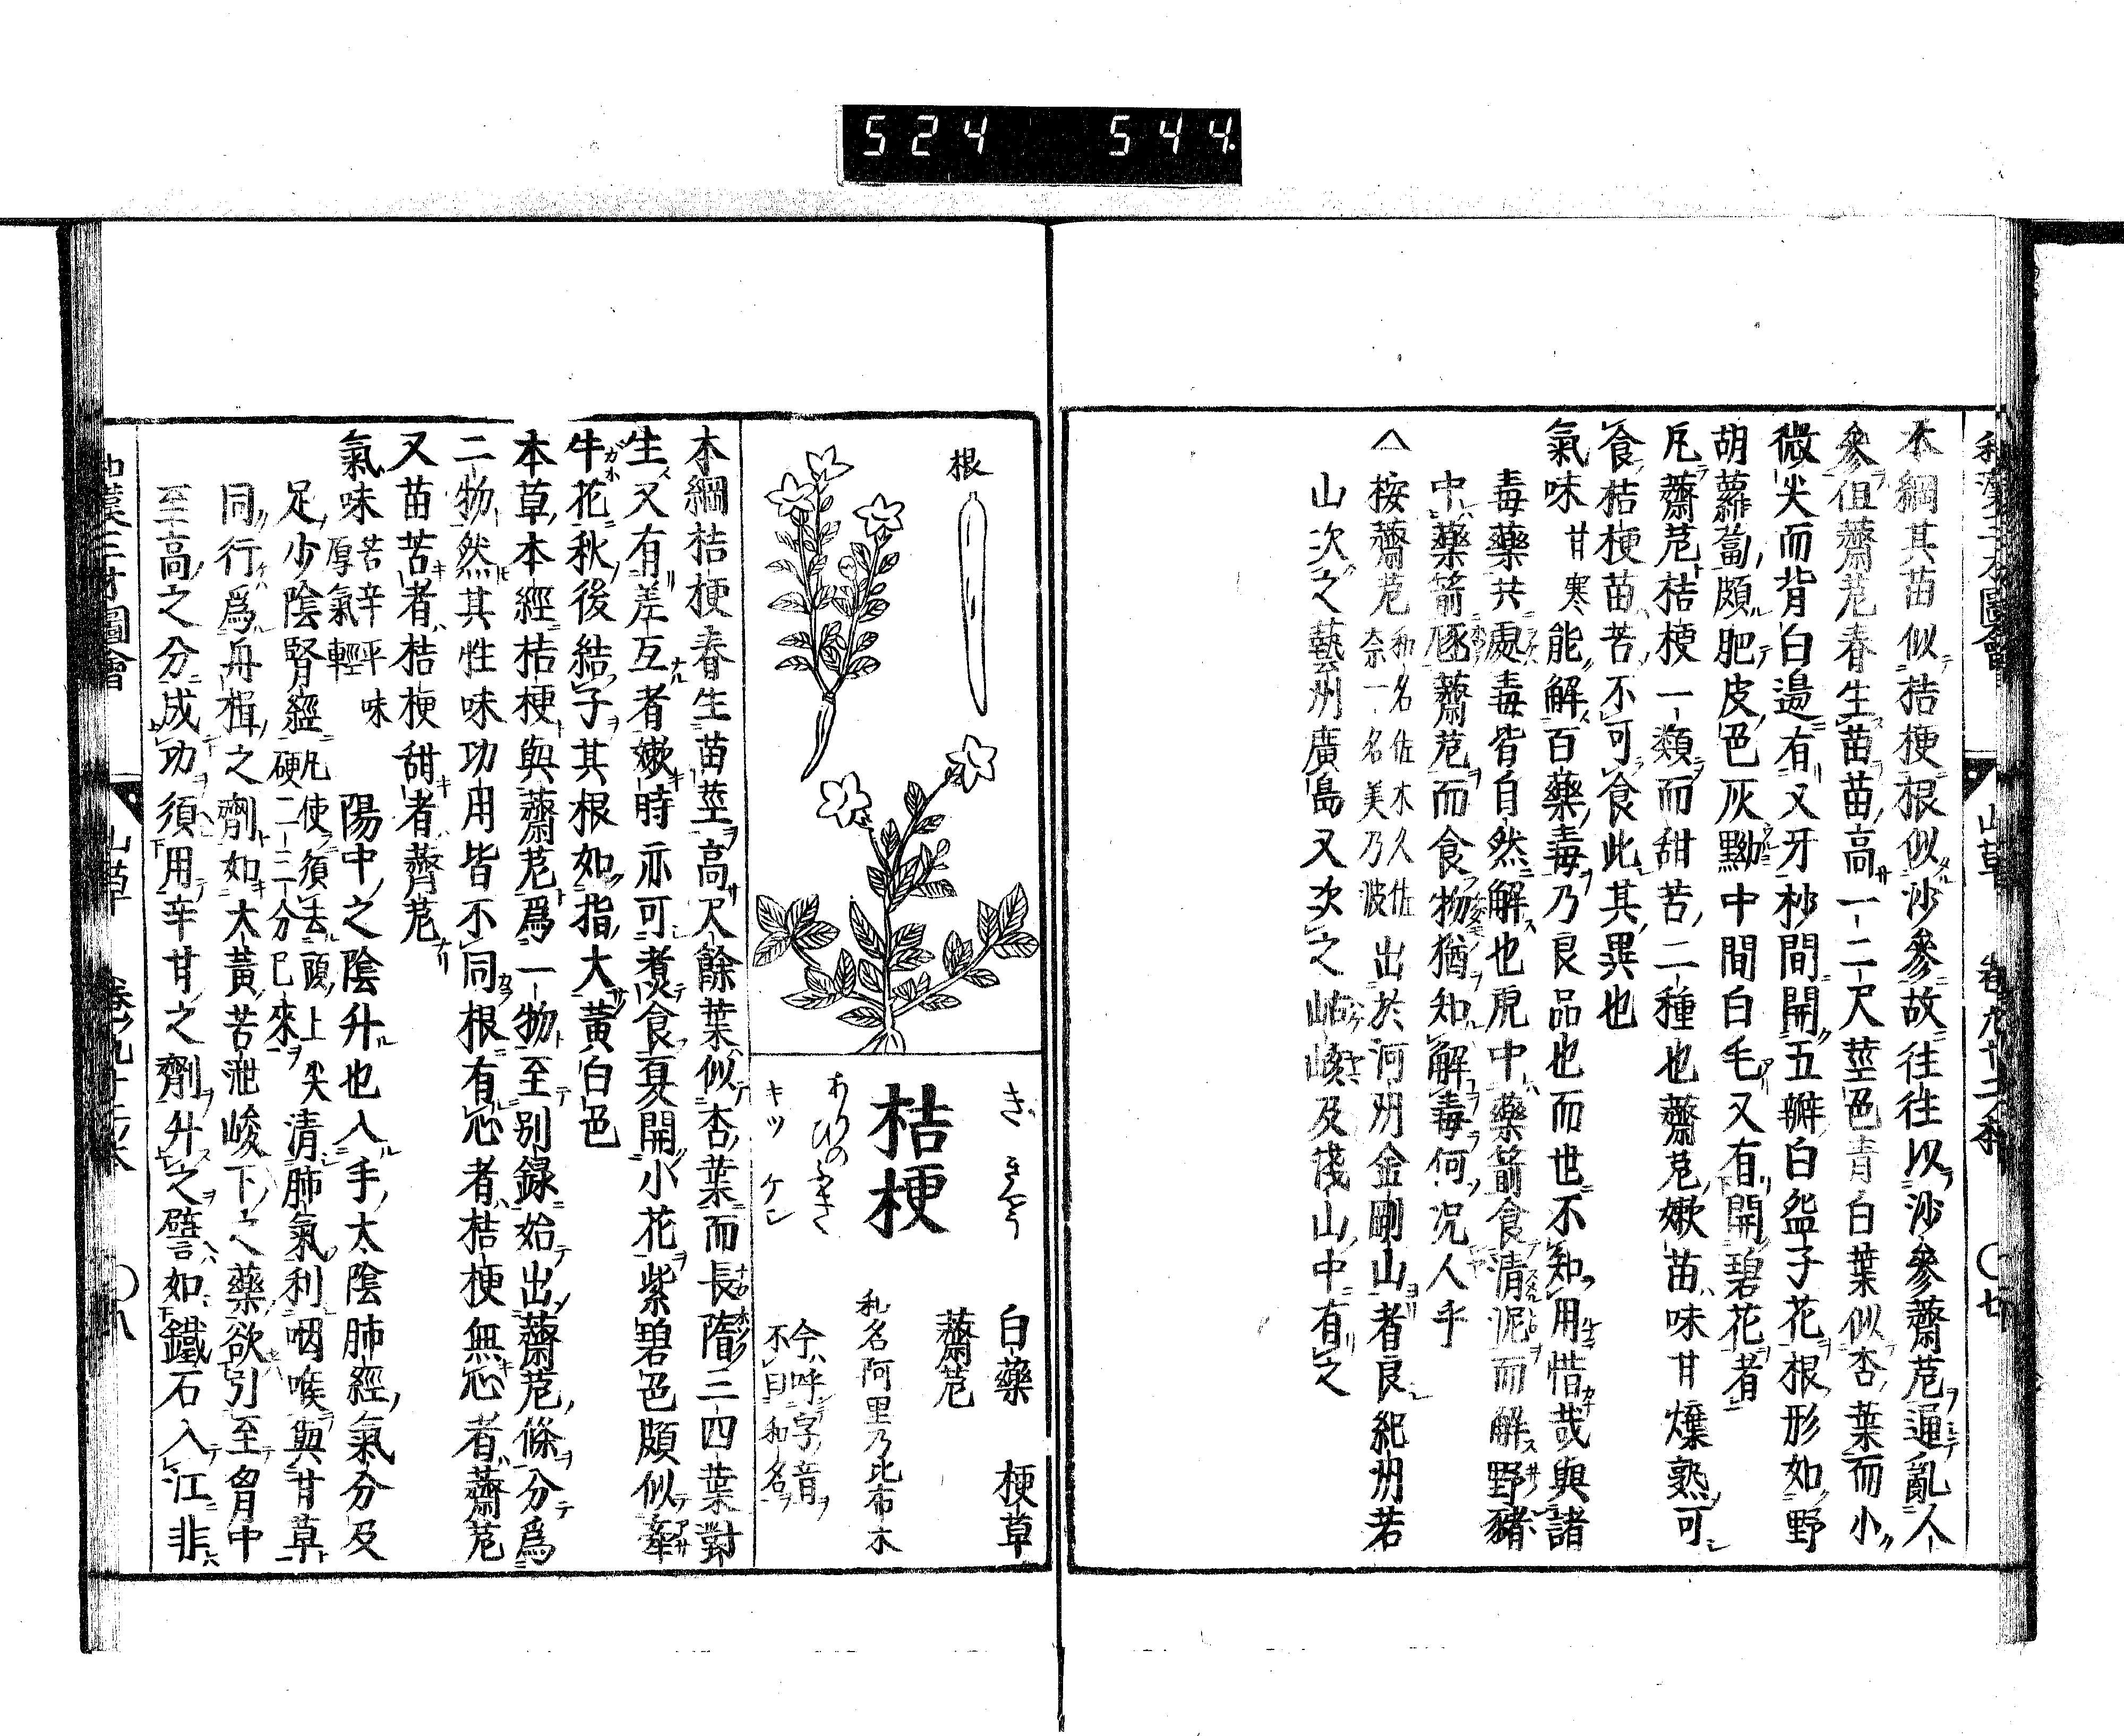 524 544.
和漢三才圖會 山草 卷九十二本 〇七
本綱其苗似桔梗根似沙參故往往以沙參薺苨通亂人
參但薺苨春生苗苗高一二尺莖色青白葉似杏葉而小
微尖而背白邊有叉牙杪間開五瓣白盌子花根形如野
胡蘿蔔頗肥皮色灰黝中間白毛又有開碧花者
凡薺苨桔梗一類而甜苦二種也薺苨嫩苗味甘爍熟可
食桔梗苗苦不可食此其異也
氣味甘寒能解百藥毒乃良品也而世不知用惜哉與諸
毒藥共處毒皆自然解也虎中藥箭食清泥而解野猪
中藥箭豗薺苨而食物猶知解毒何況人乎
△按薺苨和名佐木久佐
奈一名美乃波出於河州金剛山者良紀州若
山次之藝州廣島又次之岵峻及淺山中有之
根
桔梗
ききやう
ありのひふき
キツ ケン
白藥 梗草
薺苨
和名阿里乃比布木
今呼字音
不曰和名
本綱桔梗春生苗莖高尺餘葉似杏葉而長隋三四葉對
生又有差互者嫩時亦可煑食夏開小花紫碧色頗似牽
牛花秋後結子其根如指大黃白色
本草本經桔梗與薺苨爲一物至別録始出薺苨條分爲
二物然其性味功用皆不同根有心者桔梗無心者薺苨
又苗苦者桔梗甜者薺苨
氣味苦辛平味
厚氣輕 陽中之陰升也入手太陰肺經氣分及
足少陰腎經凡使須去頭上尖
硬二三分已來清肺氣利咽喉與甘草
同行爲舟楫之劑如大黃苦泄峻下之藥欲引至胷中
至高之分成功須用辛甘之劑升之譬如鐵石入江非
和漢三才圖會 山草 卷九十二本 〇八